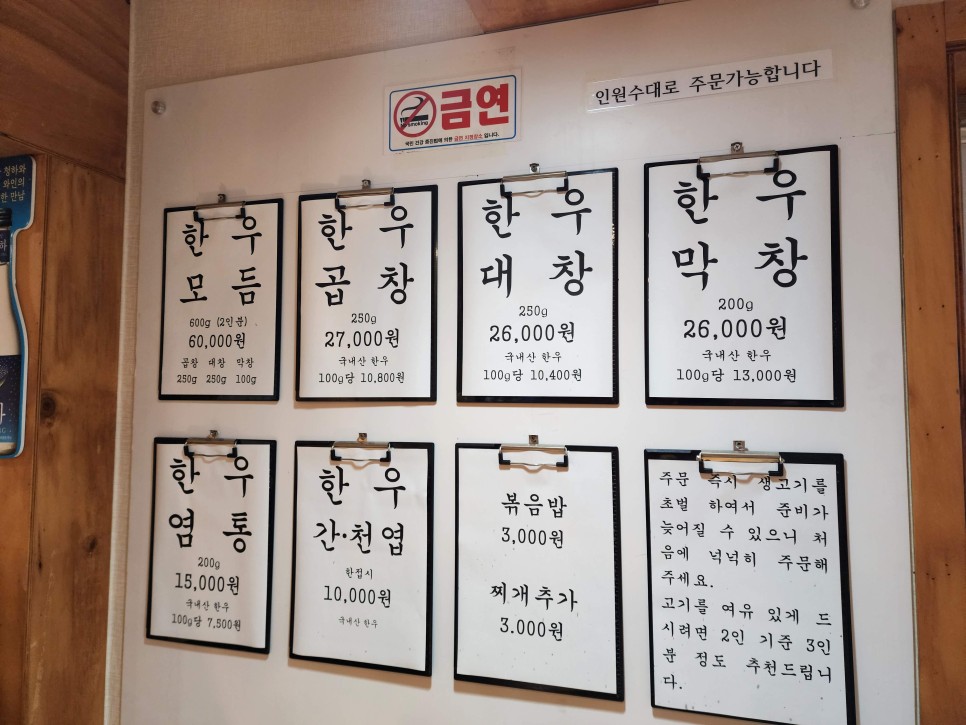 인원수대로 주문가능합니다
금연
No smoking
국민 건강 증진법에 의한 금연 지정장소 입니다.
청하와
와인의
한 만남
한우
모듬
600g (2인분)
60,000원
곱창 대창 막창
250g 250g 100g
한우
곱창
250g
27,000원
국내산 한우
100g당 10,800원
한우
대창
250g
26,000원
국내산 한우
100g당 10,400원
한우
막창
200g
26,000원
국내산 한우
100g당 13,000원
한우
염통
200g
15,000원
국내산 한우
100g당 7,500원
한우
간·천엽
한접시
10,000원
국내산 한우
볶음밥
3,000원
찌개추가
3.000원
주문 즉시 생고기를
초벌 하여서 준비가
늦어질 수 있으니 처
음에 넉넉히 주문해
주세요.
고기를 여유 있게 드
시려면 2인 기준 3인
분 정도 추천드립니
다.